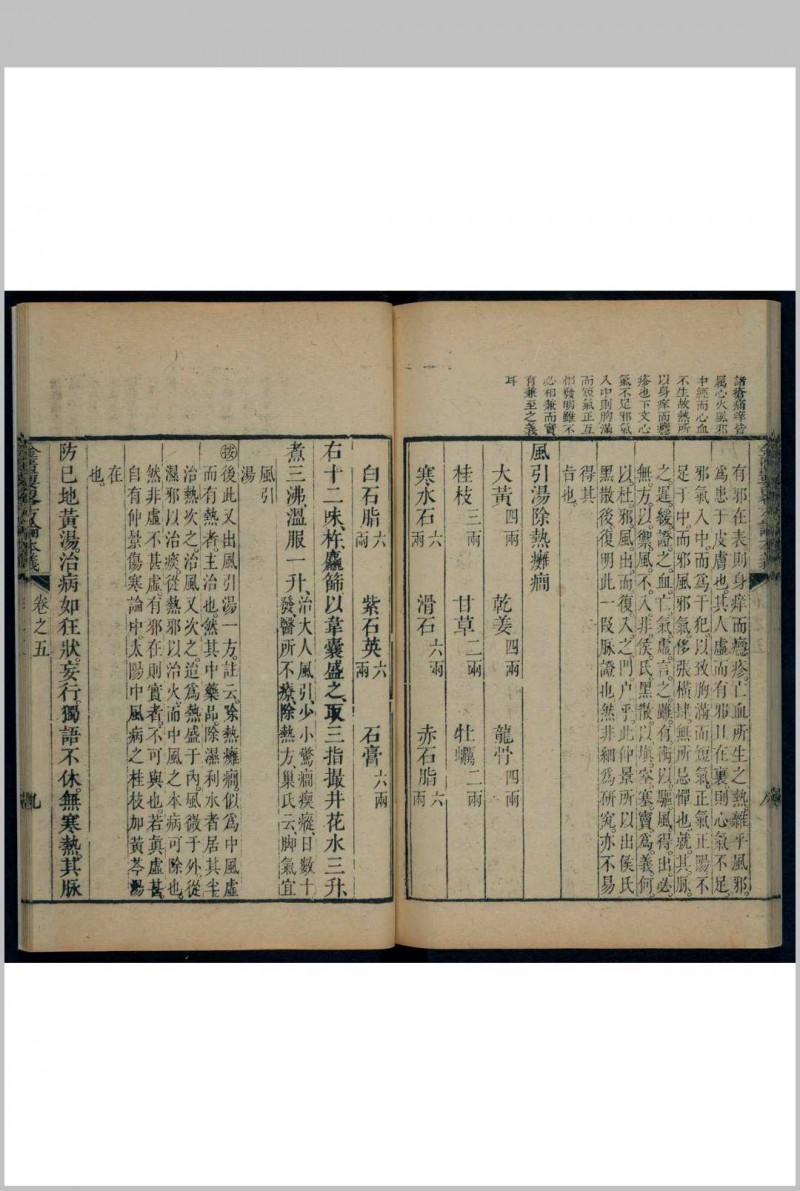 諸瘡痛痒皆
屬心火風邪
中經而心血
不生故熱所
以身痒而癮
疹也下文心
氣不足邪氣
入中則胸滿
而短氣正互
相發明雖不
必相兼而實
有兼至之義
耳
有邪在表則身痒而癮疹亡血所生之熱雜乎風邪
屬于皮膚也其人虛而有邪且在裏則心氣不足
邪氣入中而爲干犯以致胸滿而短氣正氣正陽不
足于中而邪風邪氣侈張橫肆無所忌憚也就其脉
之遲緩證之血亡氣虛言之雖有術以驅風得出必
無方以禦風不入非侯氏黑散以塡窄塞竇爲義何
以杜邪風出而復入之門户乎此仲景所以出侯氏
黑散後復明此一段脉證也然非細爲研究亦不易
得其
旨也
風引湯除熱癱癎
大黃四兩 乾姜四兩 龍骨四兩
桂枝三兩 甘草二兩 牡蠣二兩
寒水石六兩 滑石六兩 赤石脂六兩
白石脂六兩 紫石英六兩 石膏六兩
右十二味杵麤篩以韋囊盛之取三指撮井花水三升
煮三沸溫服一升治大人風引少小驚癎瘈瘲日數十
發醫所不療除熱方巢氏云脚氣宜
風引
湯
按後此又出風引湯一方註云除熱癱癎似爲中風虛
而有熱者主治也然其中藥品除濕利水者居其半
治熱次之治風又次之道爲熱盛于內風微于外從
濕邪以治痰從熱邪以治火而中風之本病可除也
然非虛不甚虛有邪在則實者不可與也若眞虛甚
自有仲景傷寒論中太陽中風病之桂枝加黃芩湯
在
也
卷之五
九
防已地黃湯治病如狂狀妄行獨語不休無寒熱其脉